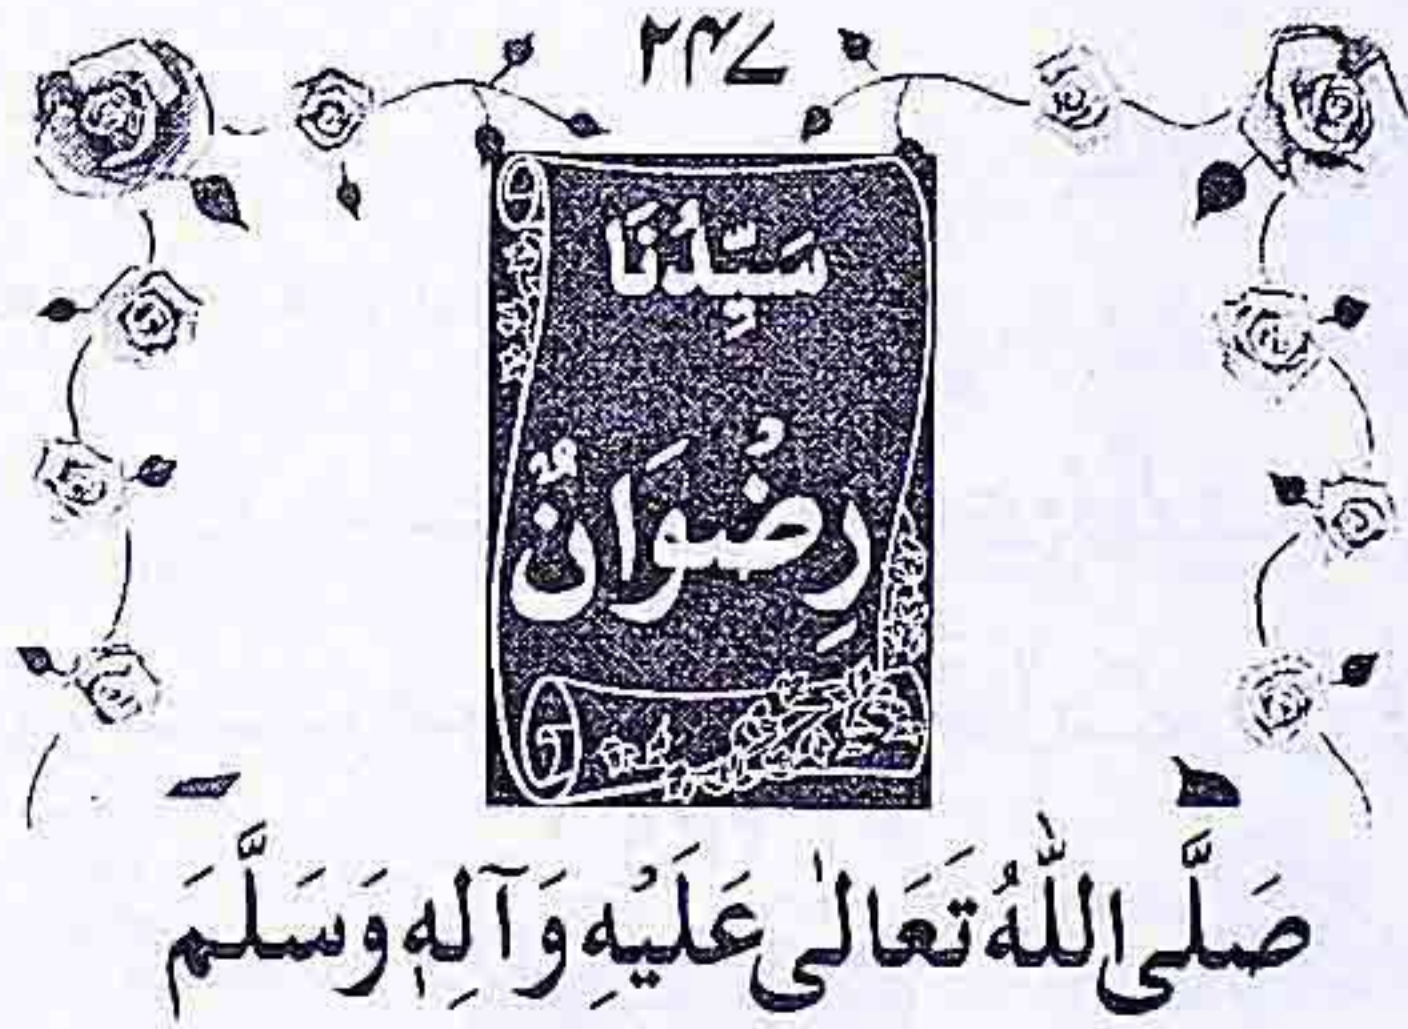 ۲۴۷
سَيِّدُنَا
رِضْوَانٌ
صَلَّى اللّٰهُ تَعَالٰى عَلَيْهِ وَآلِهٖ وَسَلَّمَ